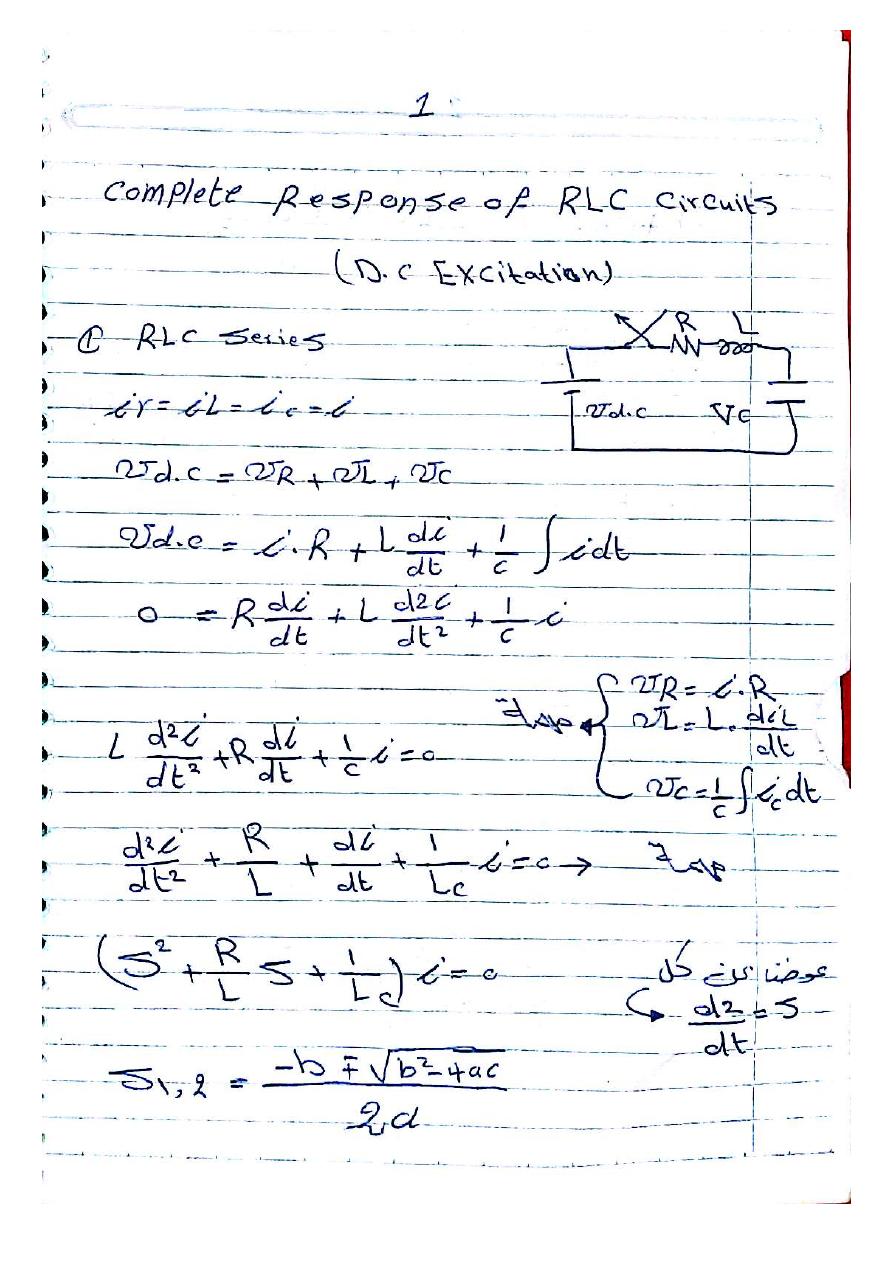 1
Complete Response of RLC Circuits
(D.C Excitation)
① RLC Series
R L
ir = iL = ic = i
Vd.c Vc
Vd.c = VR + VL + Vc
Vd.c = i.R + L di/dt + 1/c ∫ idt
0 = R di/dt + L d2i/dt² + 1/c i
مهمة { VR = i.R
VL = L. diL/dt
Vc = 1/c ∫ ic dt
L d²i/dt² + R di/dt + 1/c i = 0
d²i/dt² + R/L + di/dt + 1/Lc i = 0 → مهمة
(S² + R/L S + 1/Lc) i = 0
عوضنا عن كل
d2/dt = S
S1,2 = -b ∓ √b²-4ac / 2a